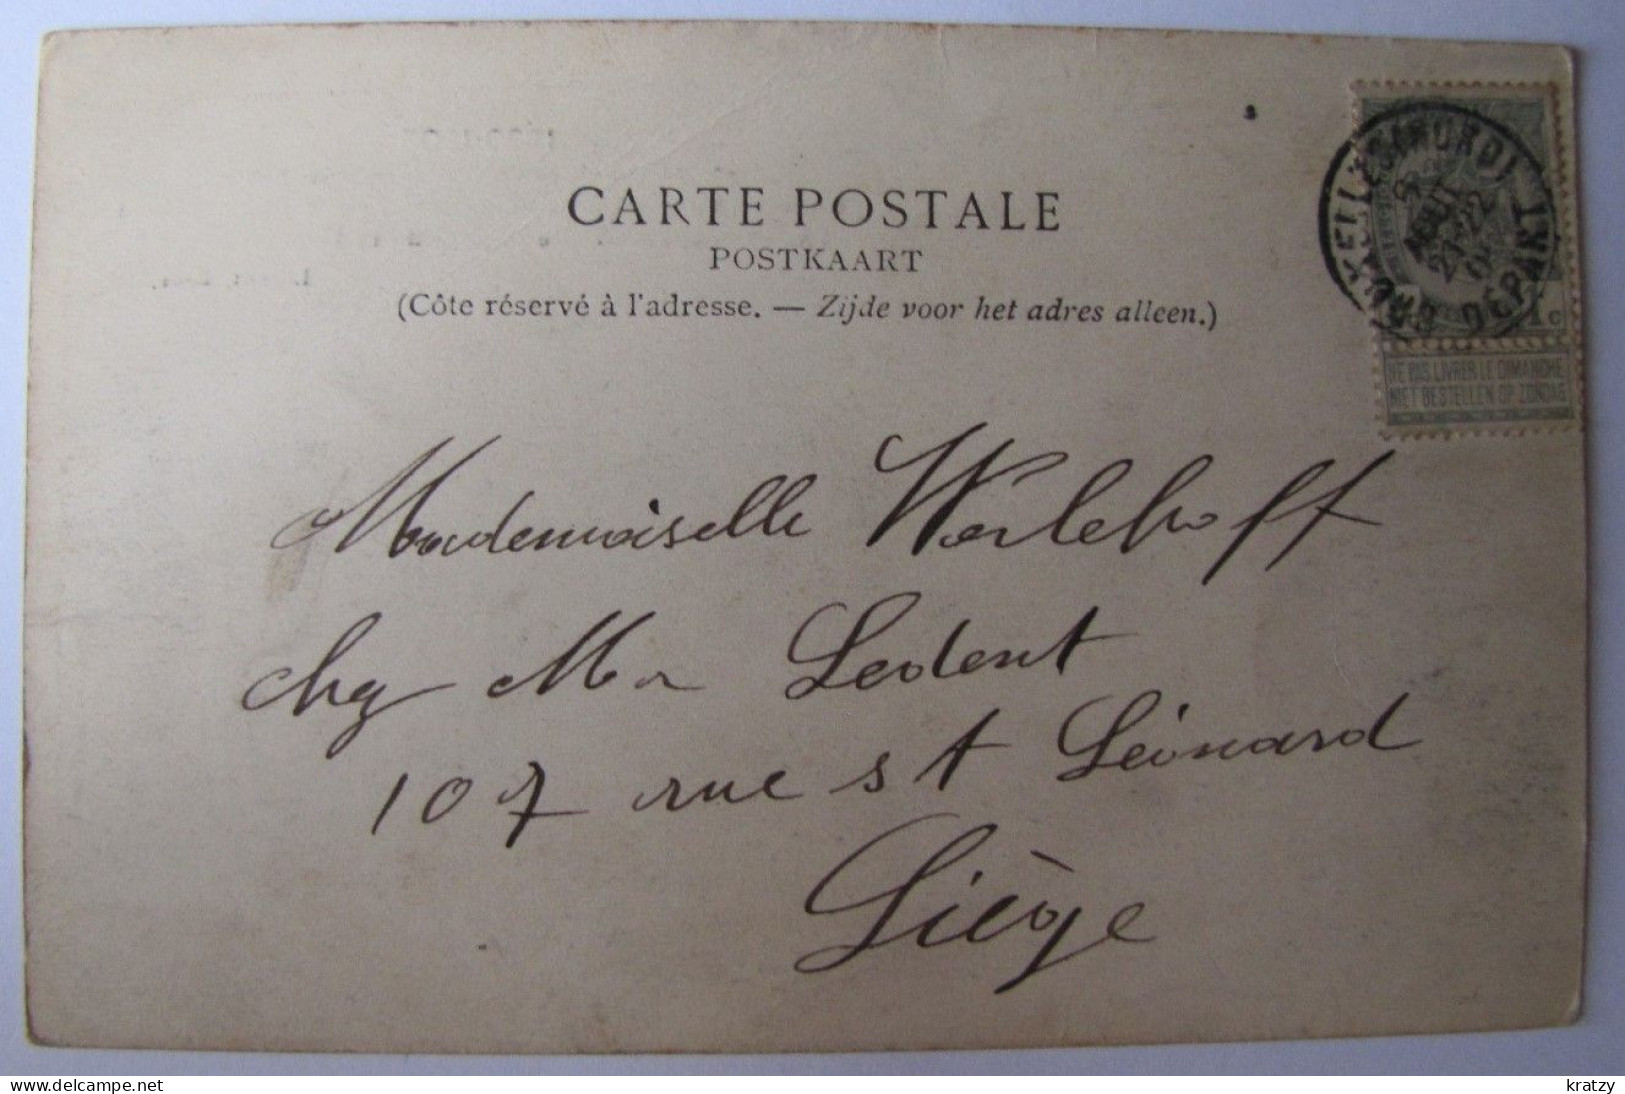 CARTE POSTALE
POSTKAART
(Côte réservé à l'adresse. — Zijde voor het adres alleen.)
BRUXELLES (NORD)
DÉPART
AOUT
1c
NE PAS LIVRER LE DIMANCHE
NIET BESTELLEN OP ZONDAG
Mademoiselle Werlehoff
chez Mr Ledent
107 rue st Léonard
Liège
delcampe.net
kratzy